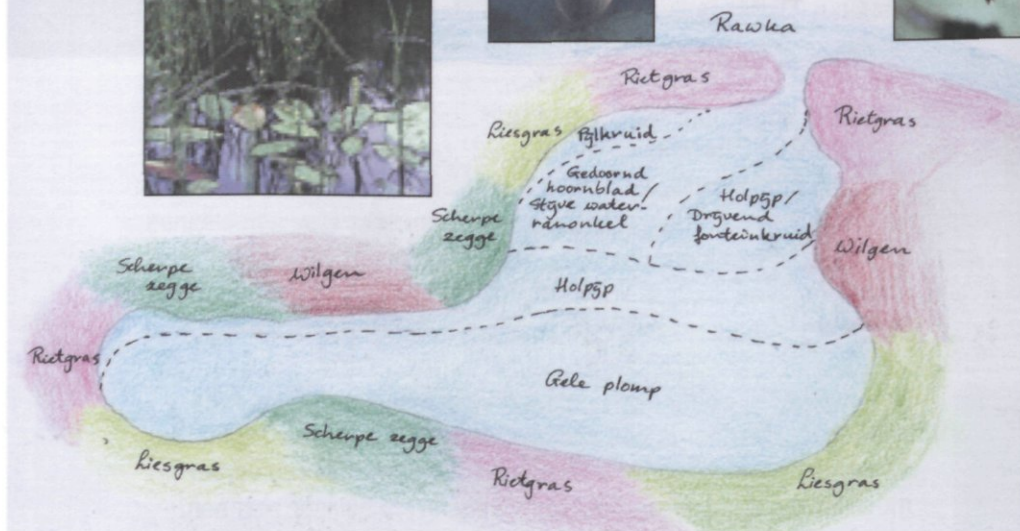 Rawka
Rietgras
Rietgras
Liesgras
Pijlkruid
Gedoornd
hoornblad/
Stijve water-
ranonkel
Holpijp/
Drijvend
fonteinkruid
Scherpe
zegge
Wilgen
Scherpe
zegge
Wilgen
Holpijp
Rietgras
Gele plomp
Scherpe zegge
Liesgras
Rietgras
Liesgras